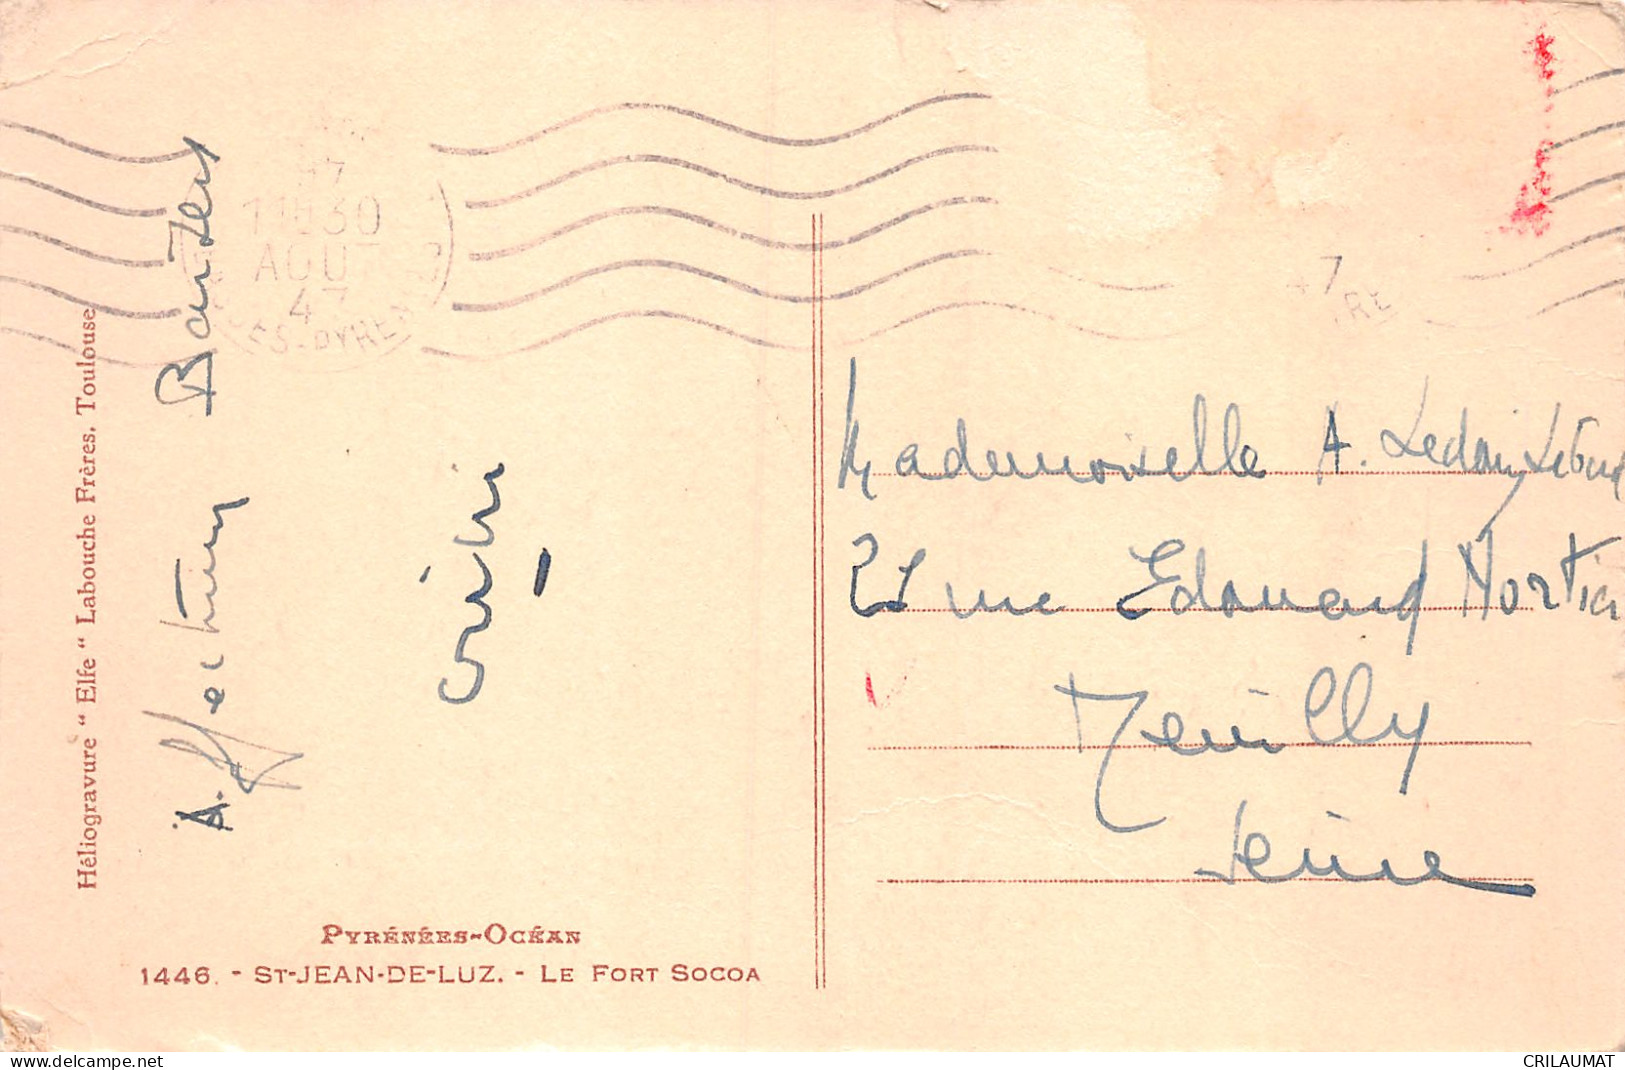 Héliogravure “ Elfe “ Labouche Frères, Toulouse
Baisers
47
11H30
AOUT
47
47
RE
Mademoiselle A.
21 rue Edouard Nortier
Neuilly
Seine
PYRÉNÉES-OCÉAN
1446. - ST-JEAN-DE-LUZ. - LE FORT SOCOA
www.delcampe.net
CRILAUMAT